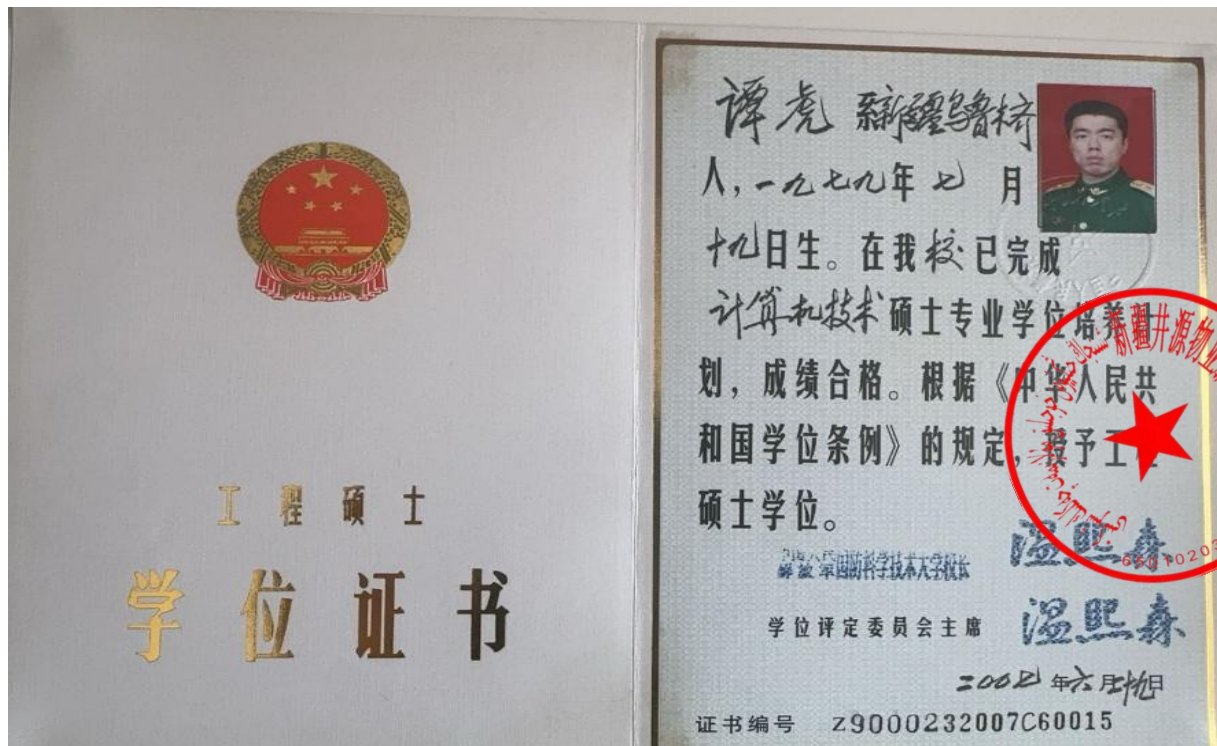 工程硕士
学位证书
谭虎 系新疆乌鲁木齐
人，一九七九年七月
十九日生。在我校已完成
计算机技术硕士专业学位培养计
划，成绩合格。根据《中华人民共
和国学位条例》的规定，授予工程
硕士学位。
国防科学技术大学校长 温熙森
学位评定委员会主席 温熙森
二00七年六月二十九日
证书编号 Z9000232007C60015
新疆井源物业